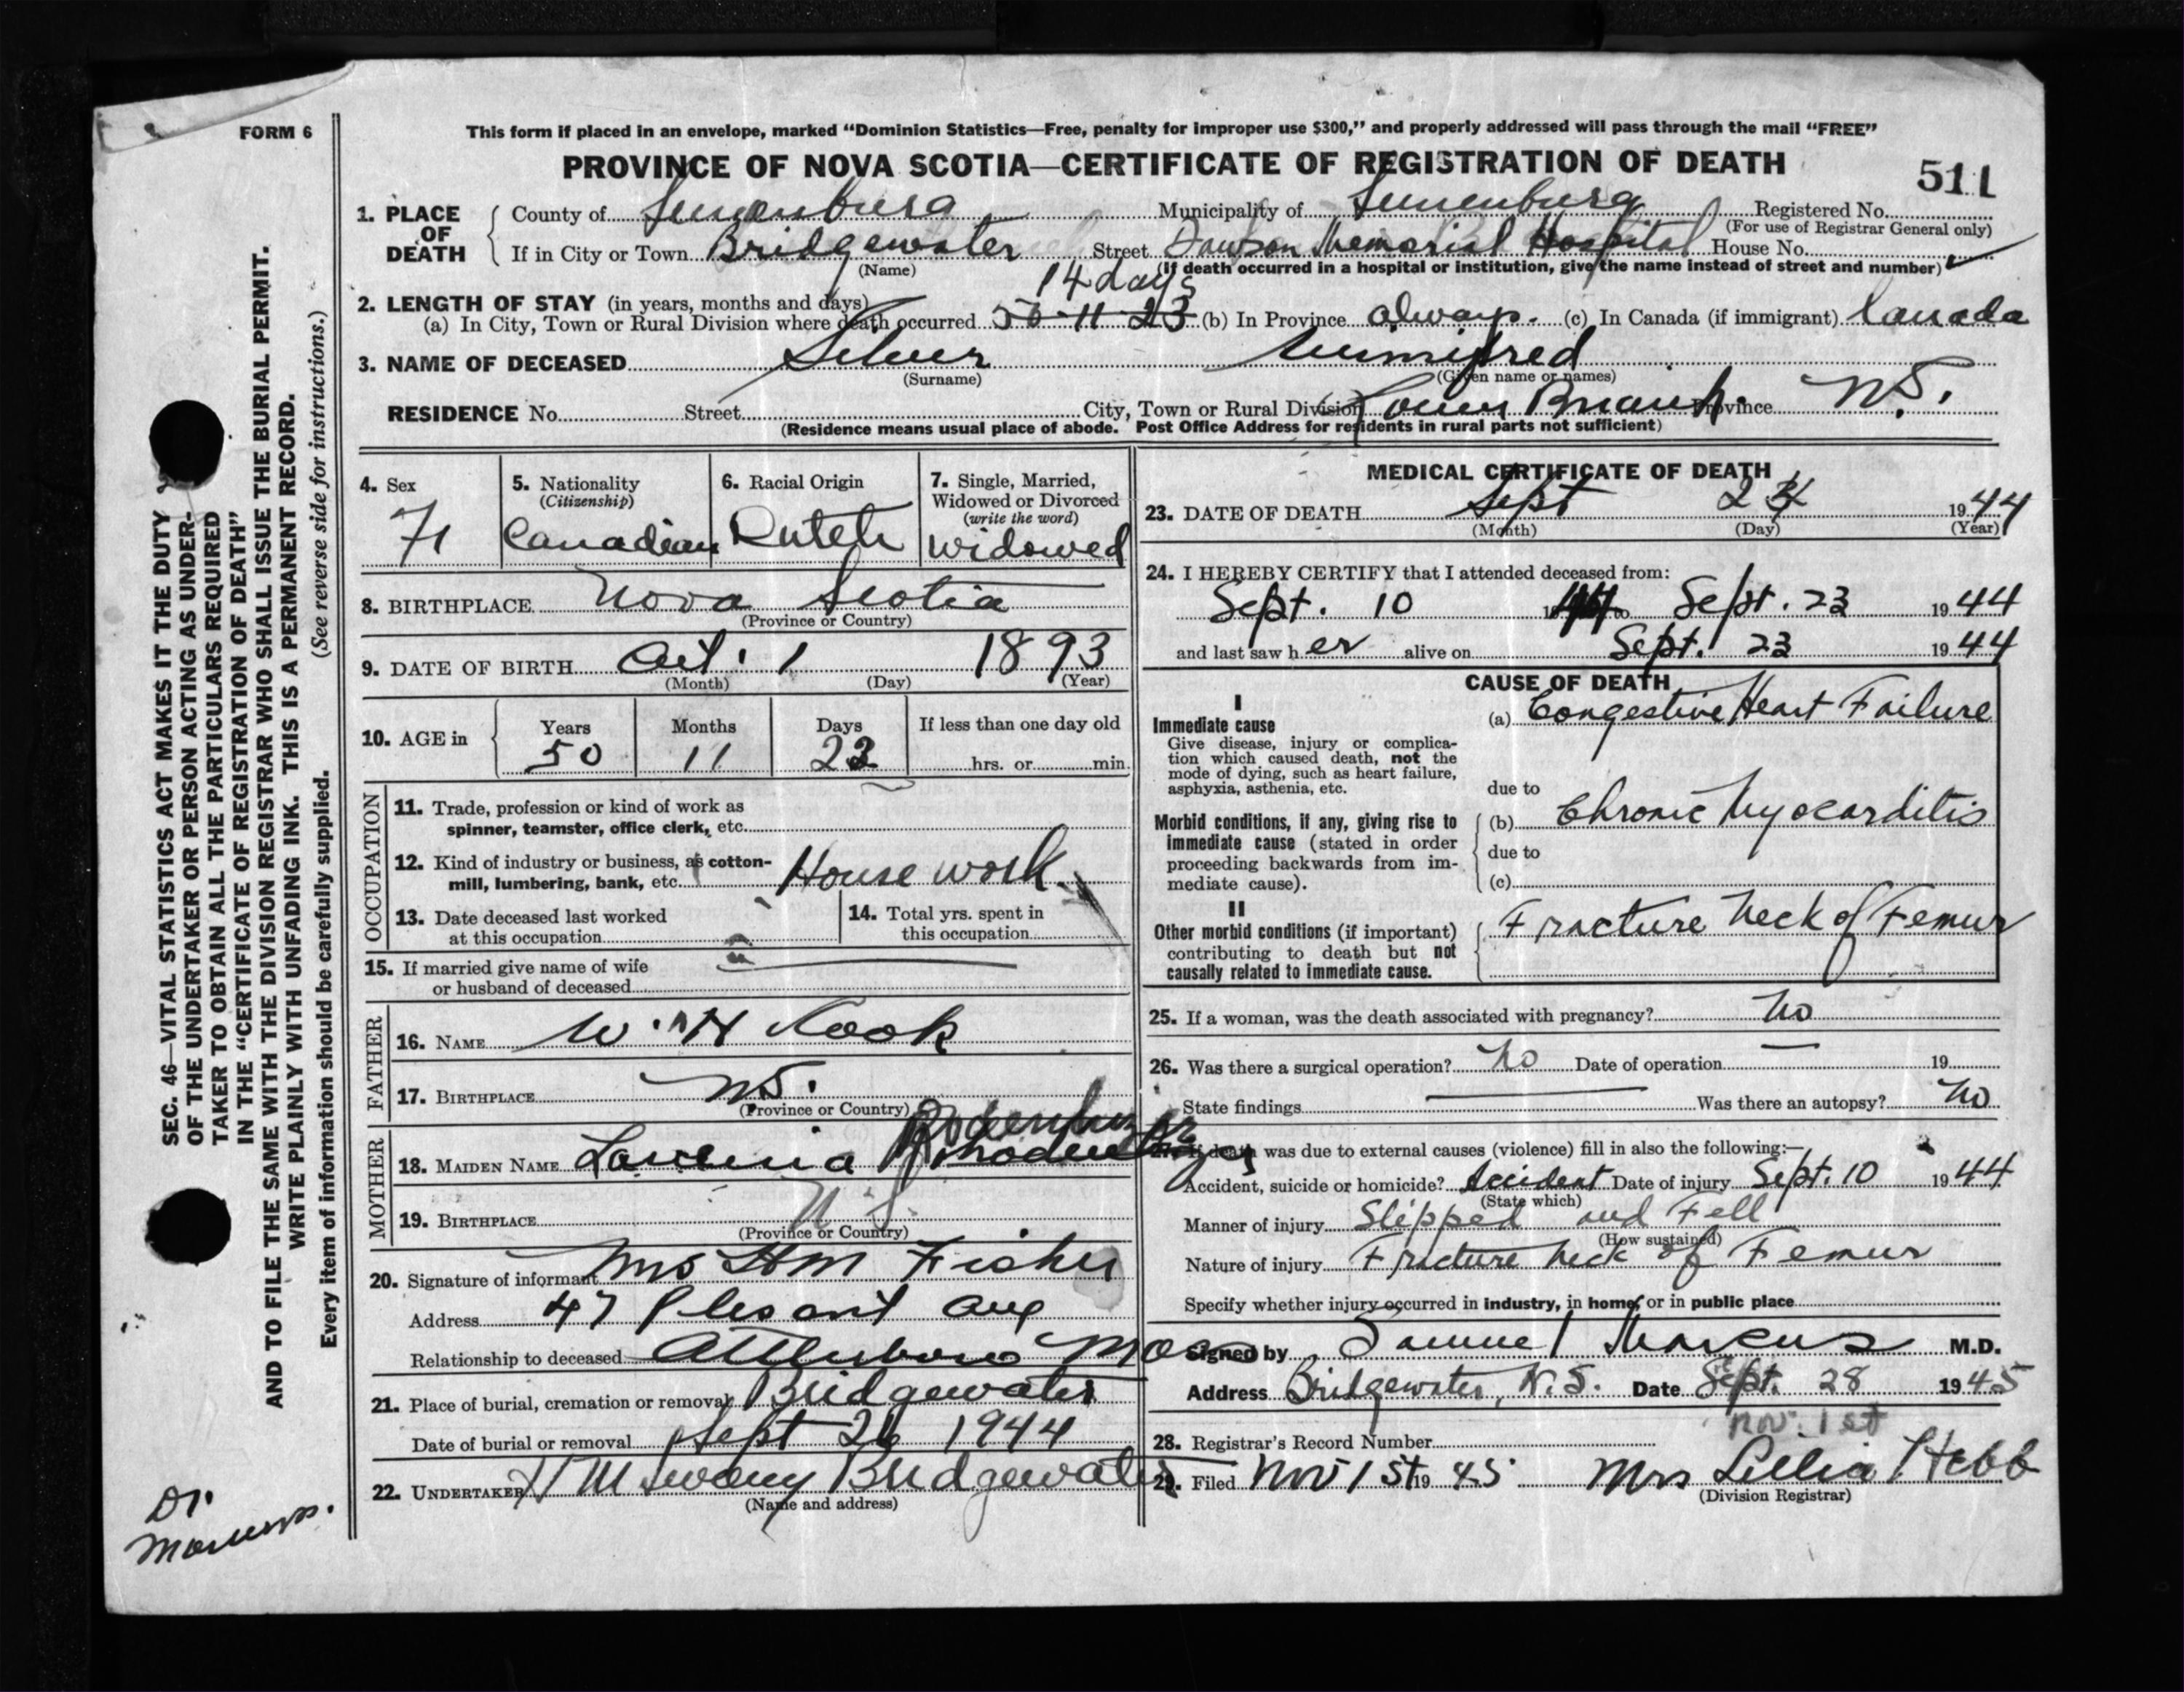 FORM 6
This form if placed in an envelope, marked "Dominion Statistics—Free, penalty for improper use $300," and properly addressed will pass through the mail "FREE"
PROVINCE OF NOVA SCOTIA—CERTIFICATE OF REGISTRATION OF DEATH
511
1. PLACE OF DEATH
County of Lunenburg Municipality of Lunenburg Registered No.
(For use of Registrar General only)
If in City or Town Bridgewater Street Dawson Memorial Hospital House No.
(Name) (If death occurred in a hospital or institution, give the name instead of street and number)
14 days
2. LENGTH OF STAY (in years, months and days)
(a) In City, Town or Rural Division where death occurred 50-11-23 (b) In Province always. (c) In Canada (if immigrant) Canada
3. NAME OF DECEASED Silver Winnifred
(Surname) (Given name or names)
RESIDENCE No. Street City, Town or Rural Division Lower Branch Province N.S.
(Residence means usual place of abode. Post Office Address for residents in rural parts not sufficient)
4. Sex F
5. Nationality (Citizenship) Canadian
6. Racial Origin Dutch
7. Single, Married, Widowed or Divorced (write the word) widowed
8. BIRTHPLACE Nova Scotia
(Province or Country)
9. DATE OF BIRTH Oct. 1 1893
(Month) (Day) (Year)
10. AGE in Years 50 Months 11 Days 23 If less than one day old
hrs. or min.
OCCUPATION
11. Trade, profession or kind of work as spinner, teamster, office clerk, etc.
12. Kind of industry or business, as cotton-mill, lumbering, bank, etc. House work
13. Date deceased last worked at this occupation
14. Total yrs. spent in this occupation
15. If married give name of wife or husband of deceased
FATHER
16. NAME W. H Cook
17. BIRTHPLACE N.S.
(Province or Country)
MOTHER
18. MAIDEN NAME Lavenia Rodenhizer
19. BIRTHPLACE N.S.
(Province or Country)
20. Signature of informant Mrs H M Fisher
Address 47 Plesant Aug
Relationship to deceased Attleboro Mass
21. Place of burial, cremation or removal Bridgewater
Date of burial or removal Sept 26 1944
22. UNDERTAKER H M Sweeny Bridgewater
(Name and address)
MEDICAL CERTIFICATE OF DEATH
23. DATE OF DEATH Sept 24 1944
(Month) (Day) (Year)
24. I HEREBY CERTIFY that I attended deceased from:
Sept. 10 1944 to Sept. 23 1944
and last saw her alive on Sept. 23 1944
CAUSE OF DEATH
I
Immediate cause
Give disease, injury or complication which caused death, not the mode of dying, such as heart failure, asphyxia, asthenia, etc.
(a) Congestive Heart Failure
due to
Morbid conditions, if any, giving rise to immediate cause (stated in order proceeding backwards from immediate cause).
(b) Chronic Myocarditis
due to
(c)
II
Other morbid conditions (if important) contributing to death but not causally related to immediate cause.
Fracture Neck of Femur
25. If a woman, was the death associated with pregnancy? No
26. Was there a surgical operation? No Date of operation — 19
State findings Was there an autopsy? No
27. If death was due to external causes (violence) fill in also the following:—
Accident, suicide or homicide? Accident Date of injury Sept. 10 1944
(State which)
Manner of injury Slipped and Fell
(How sustained)
Nature of injury Fracture Neck of Femur
Specify whether injury occurred in industry, in home, or in public place
Signed by Samuel Marcus M.D.
Address Bridgewater, N.S. Date Sept. 28 1945
Nov. 1st
28. Registrar's Record Number
29. Filed Nov 1st 1945 Mrs Lillia Hebb
(Division Registrar)
SEC. 46—VITAL STATISTICS ACT MAKES IT THE DUTY
OF THE UNDERTAKER OR PERSON ACTING AS UNDER-
TAKER TO OBTAIN ALL THE PARTICULARS REQUIRED
IN THE "CERTIFICATE OF REGISTRATION OF DEATH"
AND TO FILE THE SAME WITH THE DIVISION REGISTRAR WHO SHALL ISSUE THE BURIAL PERMIT.
WRITE PLAINLY WITH UNFADING INK. THIS IS A PERMANENT RECORD.
Every item of information should be carefully supplied. (See reverse side for instructions.)
Dr.
Marcus.